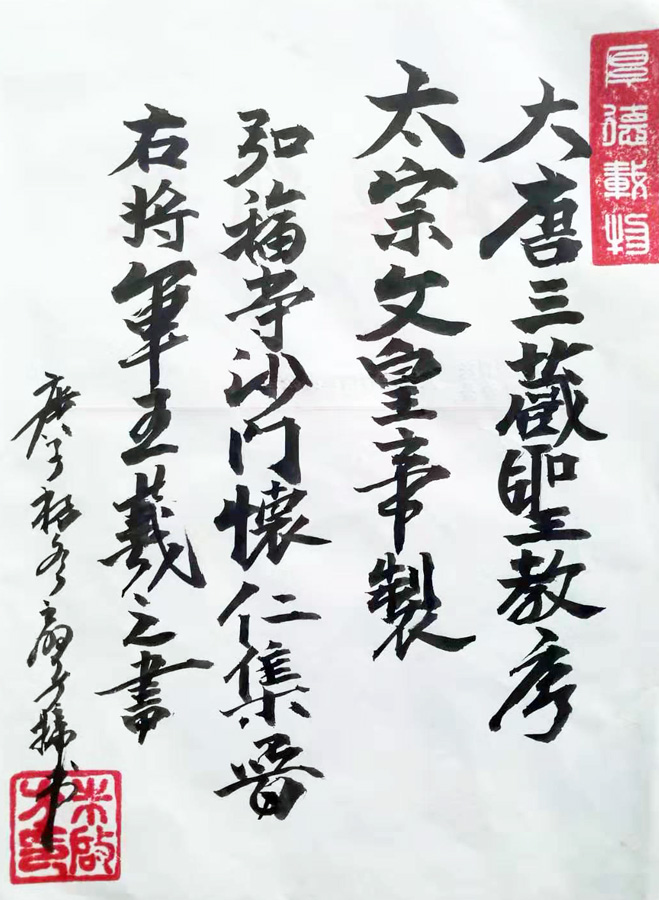 厚德載物
大唐三藏聖教序
太宗文皇帝製
弘福寺沙門懷仁集晉
右將軍王羲之書
庚子初冬书